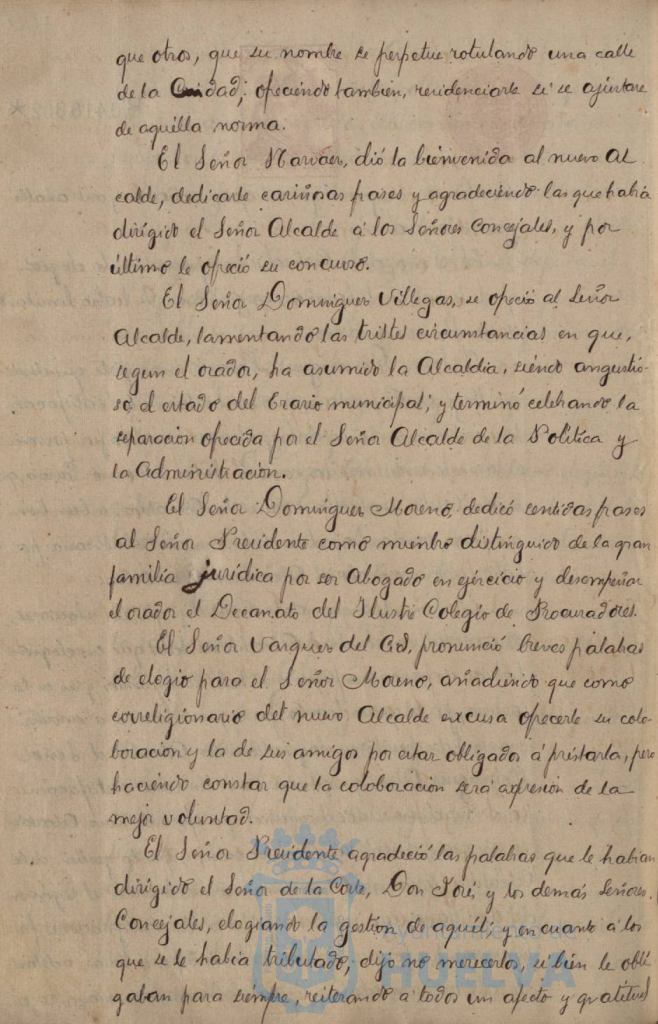 que otros, que su nombre se perpetue rotulando una calle
de la Ciudad; ofreciendo tambien, residenciarle si se ajustare
de aquella norma.
El Señor Narváez, dió la bienvenida al nuevo Al
calde, dedicarle cariñosas frases y agradeciendo las que habia
dirigido el Señor Alcalde á los Señores Concejales, y por
último le ofreció su concurso.
El Señor Dominguez Villegas, se ofreció al Señor
Alcalde, lamentando las tristes circunstancias en que,
segun el orador, ha asumido la Alcaldia, siendo angustio-
so el estado del Erario municipal; y terminó celebrando la
separacion ofrecida por el Señor Alcalde de la Politica y
la Administración.
El Señor Dominguez Moreno, dedicó sentidas frases
al Señor Presidente como miembro distinguido de la gran
familia jurídica por ser Abogado en ejercicio y desempeñar
el orador el Decanato del Ilustre Colegio de Procuradores.
El Señor Vazquez del Cid, pronunció breves palabras
de elogio para el Señor Moreno, añadiendo que como
correligionario del nuevo Alcalde excusa ofrecerle su cola-
boracion y la de sus amigos por estar obligados á prestarla, pero
haciendo constar que la colaboración será expresión de la
mejor voluntad.
El Señor Presidente agradeció las palabras que le habian
dirigido el Señor de la Corte, Don José, y los demás Señores
Concejales, elogiando la gestión de aquél; y en cuanto á los
que se le habia tributado, dijo no merecerlos, si bien le obli
gaban para siempre, reiterando á todos un afecto y gratitud
HUELVA